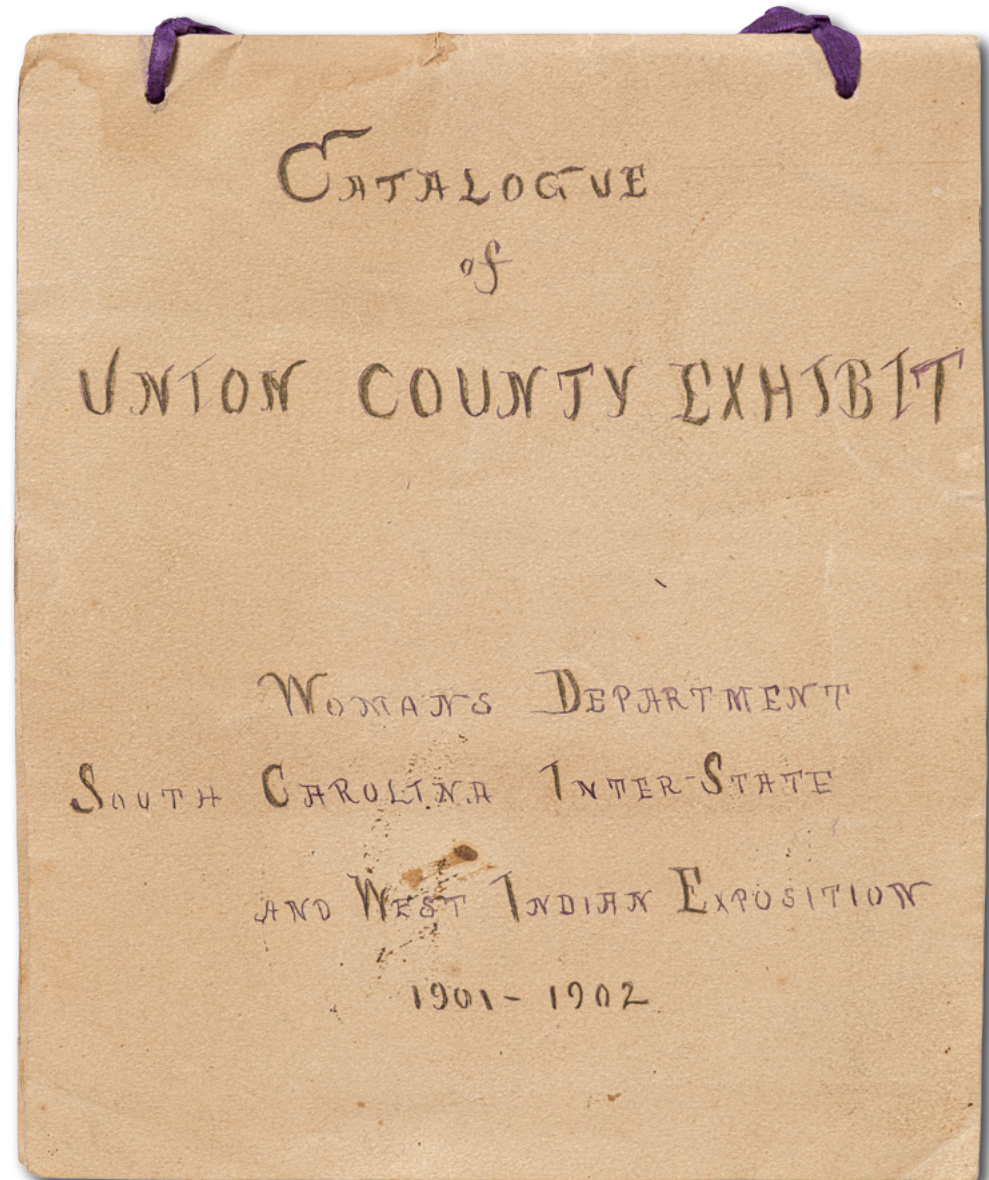 CATALOGUE
of
UNION COUNTY EXHIBIT
WOMANS DEPARTMENT
SOUTH CAROLINA INTER-STATE
AND WEST INDIAN EXPOSITION
1901-1902